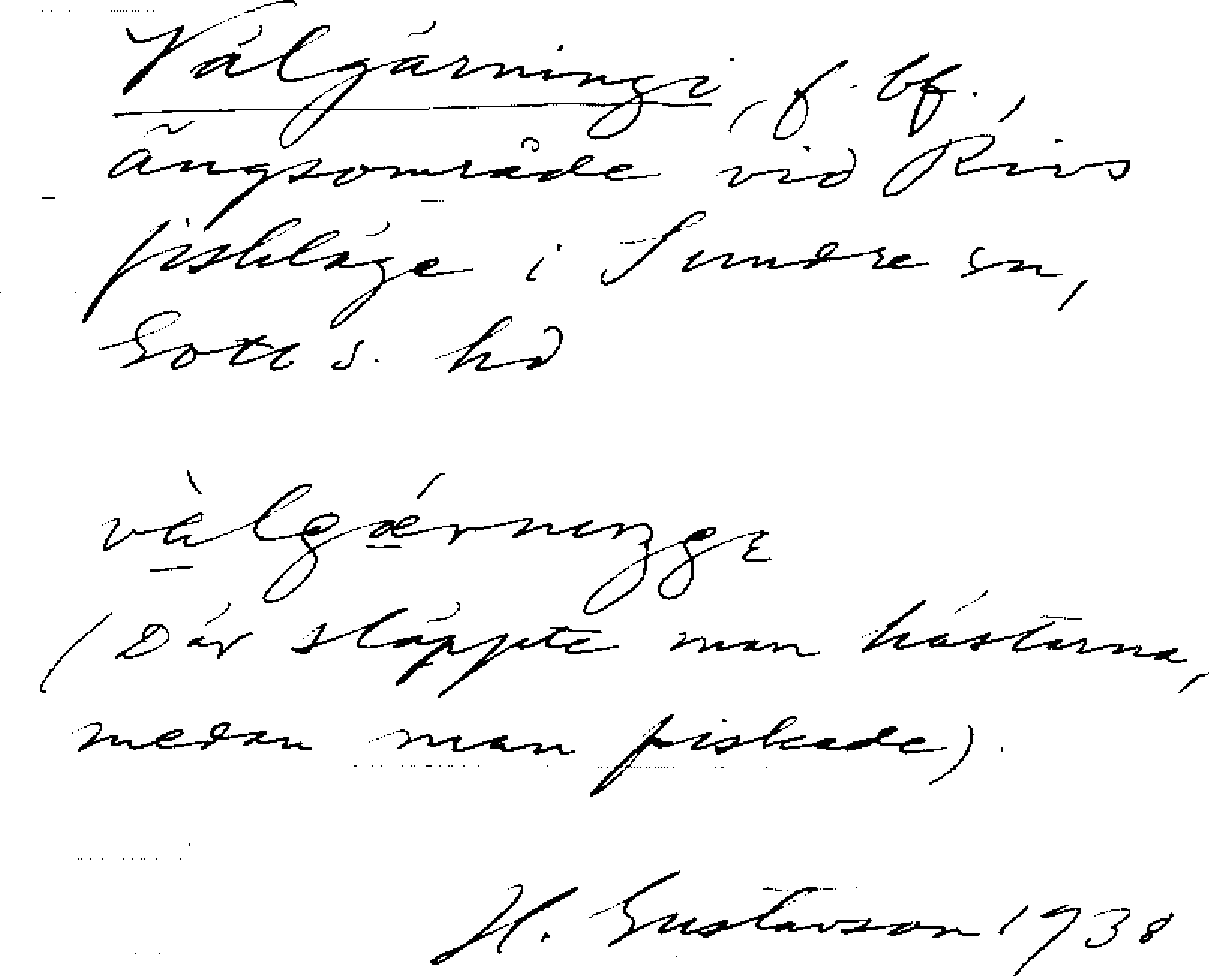 Välgärningi, f. bf.,
ängsområde vid Rivs
fiskläge i Sundre sn,
Gotl s. hd
vàlgǽrnıŋgɛ
(Där släppte man hästarna,
medan man fiskade).
H. Gustavson 1938